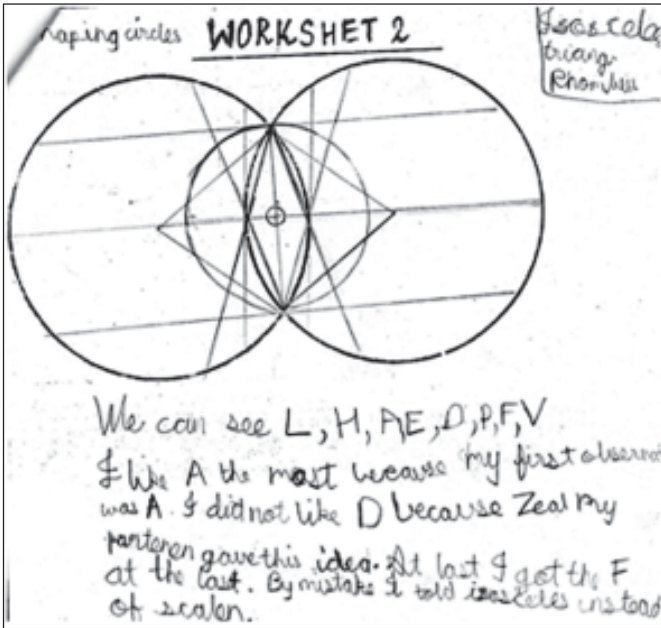 haping circles WORKSHET 2
Isoscela
triang
Rhombus
We can see L, H, A, E, D, P, F, V
I like A the most because my first observat
was A. I did not like D because Zeal my
gave this idea. At last I got the F
at the last. By mistake I told isosceles instead
of scalen.